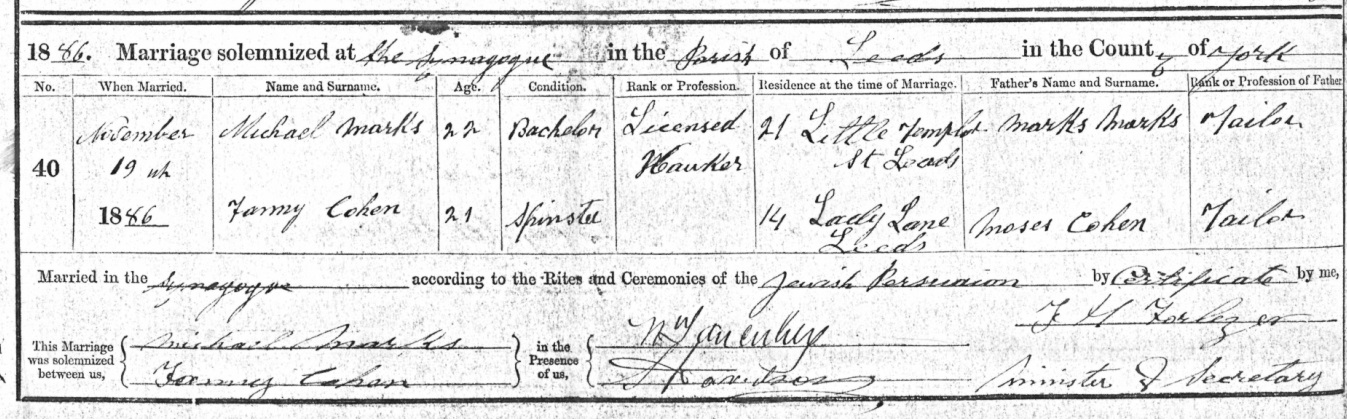 1886. Marriage solemnized at the Synagogue in the Parish of Leeds in the County of York
No. When Married. Name and Surname. Age. Condition. Rank or Profession. Residence at the time of Marriage. Father's Name and Surname. Rank or Profession of Father
40 November 19th 1886
Michael Marks 22 Bachelor Licensed Hawker 21 Little Templar St Leeds Marks Marks Tailor
Fanny Cohen 21 Spinster 14 Lady Lane Leeds Moses Cohen Tailor
Married in the Synagogue according to the Rites and Ceremonies of the Jewish Persuasion by Certificate by me,
This Marriage was solemnized between us, { Michael Marks } in the Presence of us,
Fanny Cohen
Minister & Secretary